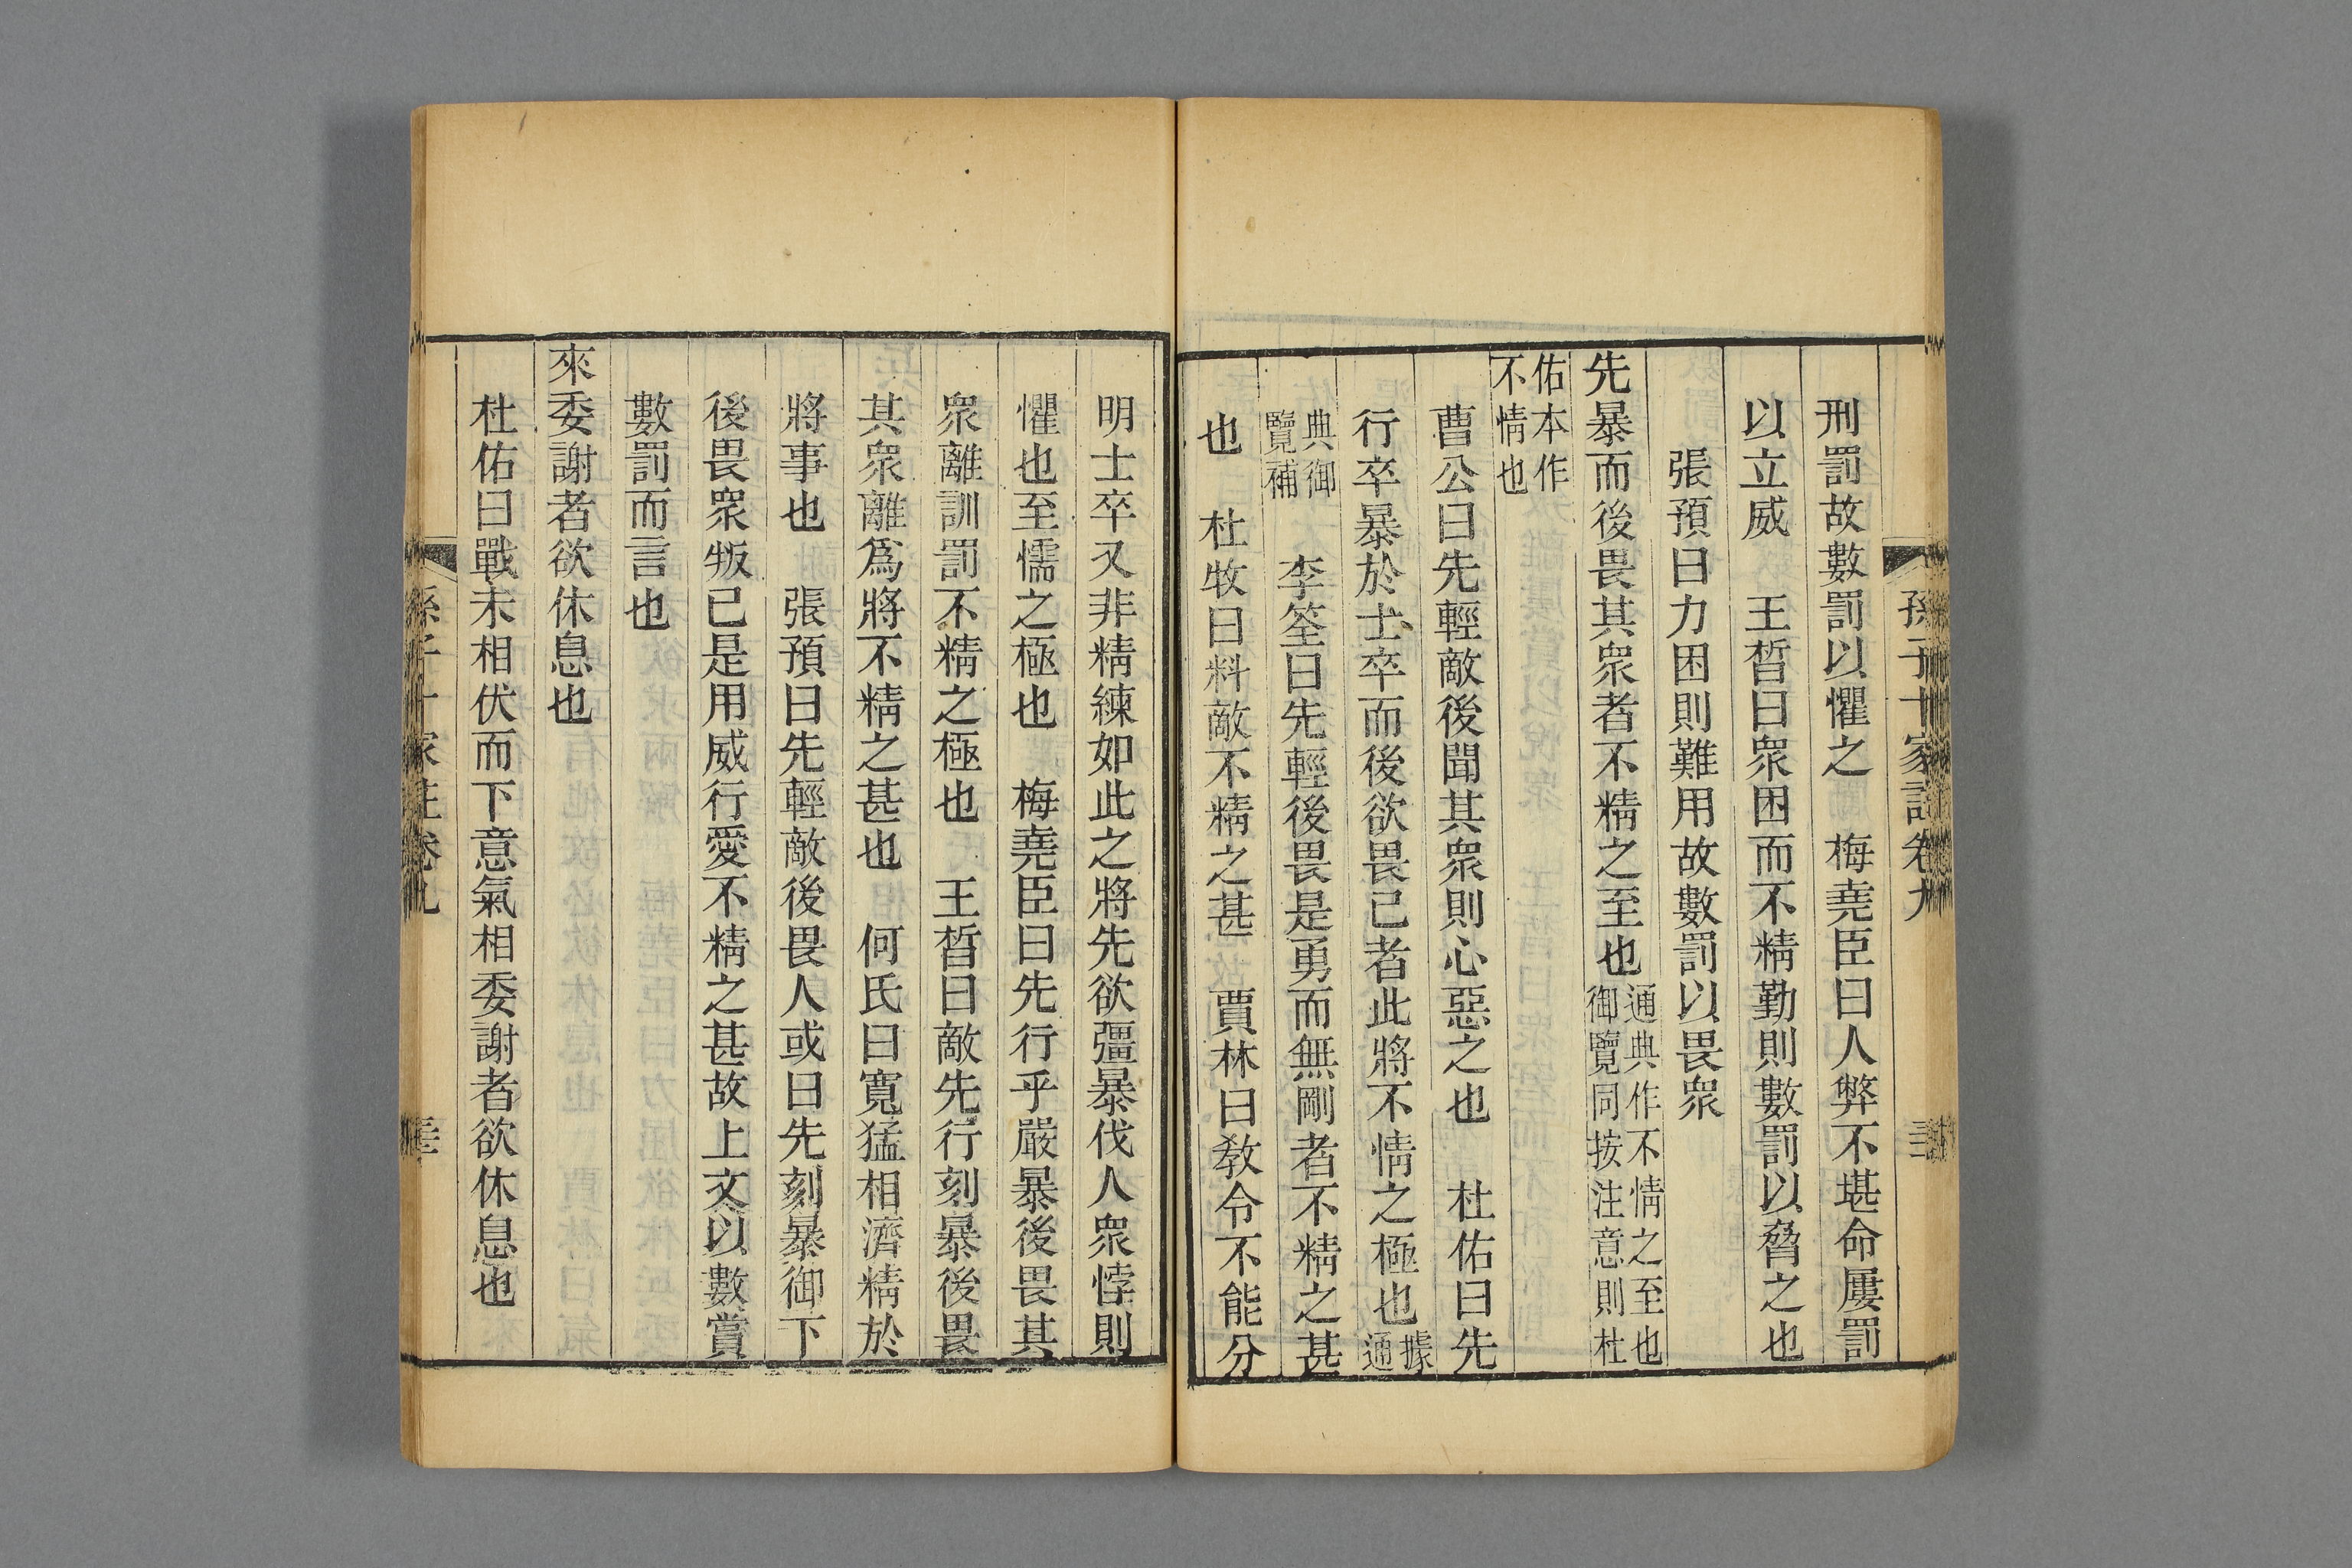 孫子十家註卷九
刑罰故數罰以懼之　梅堯臣曰人弊不堪命屢罰
以立威　王晳曰衆困而不精勤則數罰以脅之也
張預曰力困則難用故數罰以畏衆
先暴而後畏其衆者不精之至也
通典作不情之至也
御覽同按注意則杜
佑本作
不情也
曹公曰先輕敵後聞其衆則心惡之也　杜佑曰先
行卒暴於士卒而後欲畏己者此將不情之極也
據
通
典御
覽補
李筌曰先輕後畏是勇而無剛者不精之甚
也　杜牧曰料敵不精之甚　賈林曰敎令不能分
明士卒又非精練如此之將先欲彊暴伐人衆悖則
懼也至懦之極也　梅堯臣曰先行乎嚴暴後畏其
衆離訓罰不精之極也　王晳曰敵先行刻暴後畏
其衆離爲將不精之甚也　何氏曰寬猛相濟精於
將事也　張預曰先輕敵後畏人或曰先刻暴御下
後畏衆叛已是用威行愛不精之甚故上文以數賞
數罰而言也
來委謝者欲休息也
杜佑曰戰未相伏而下意氣相委謝者欲休息也
孫子十家註卷九